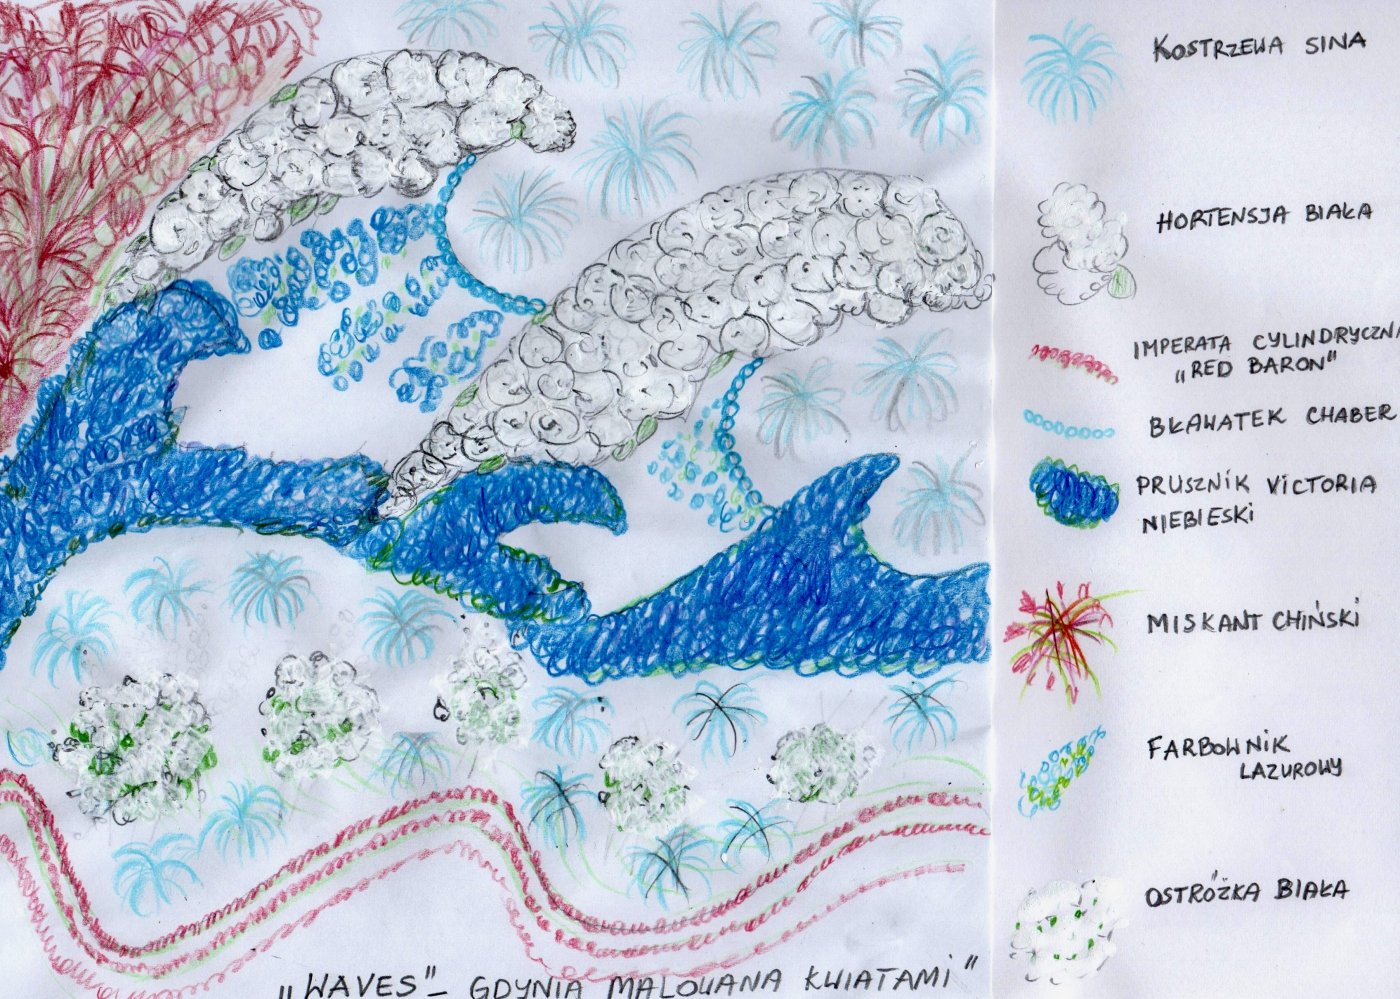 KOSTRZEWA SINA
HORTENSJA BIAŁA
IMPERATA CYLINDRYCZNA
„RED BARON"
BŁAWATEK CHABER
PRUSZNIK VICTORIA
NIEBIESKI
MISKANT CHIŃSKI
FARBOWNIK
LAZUROWY
OSTRÓŻKA BIAŁA
„WAVES"– GDYNIA MALOWANA KWIATAMI"